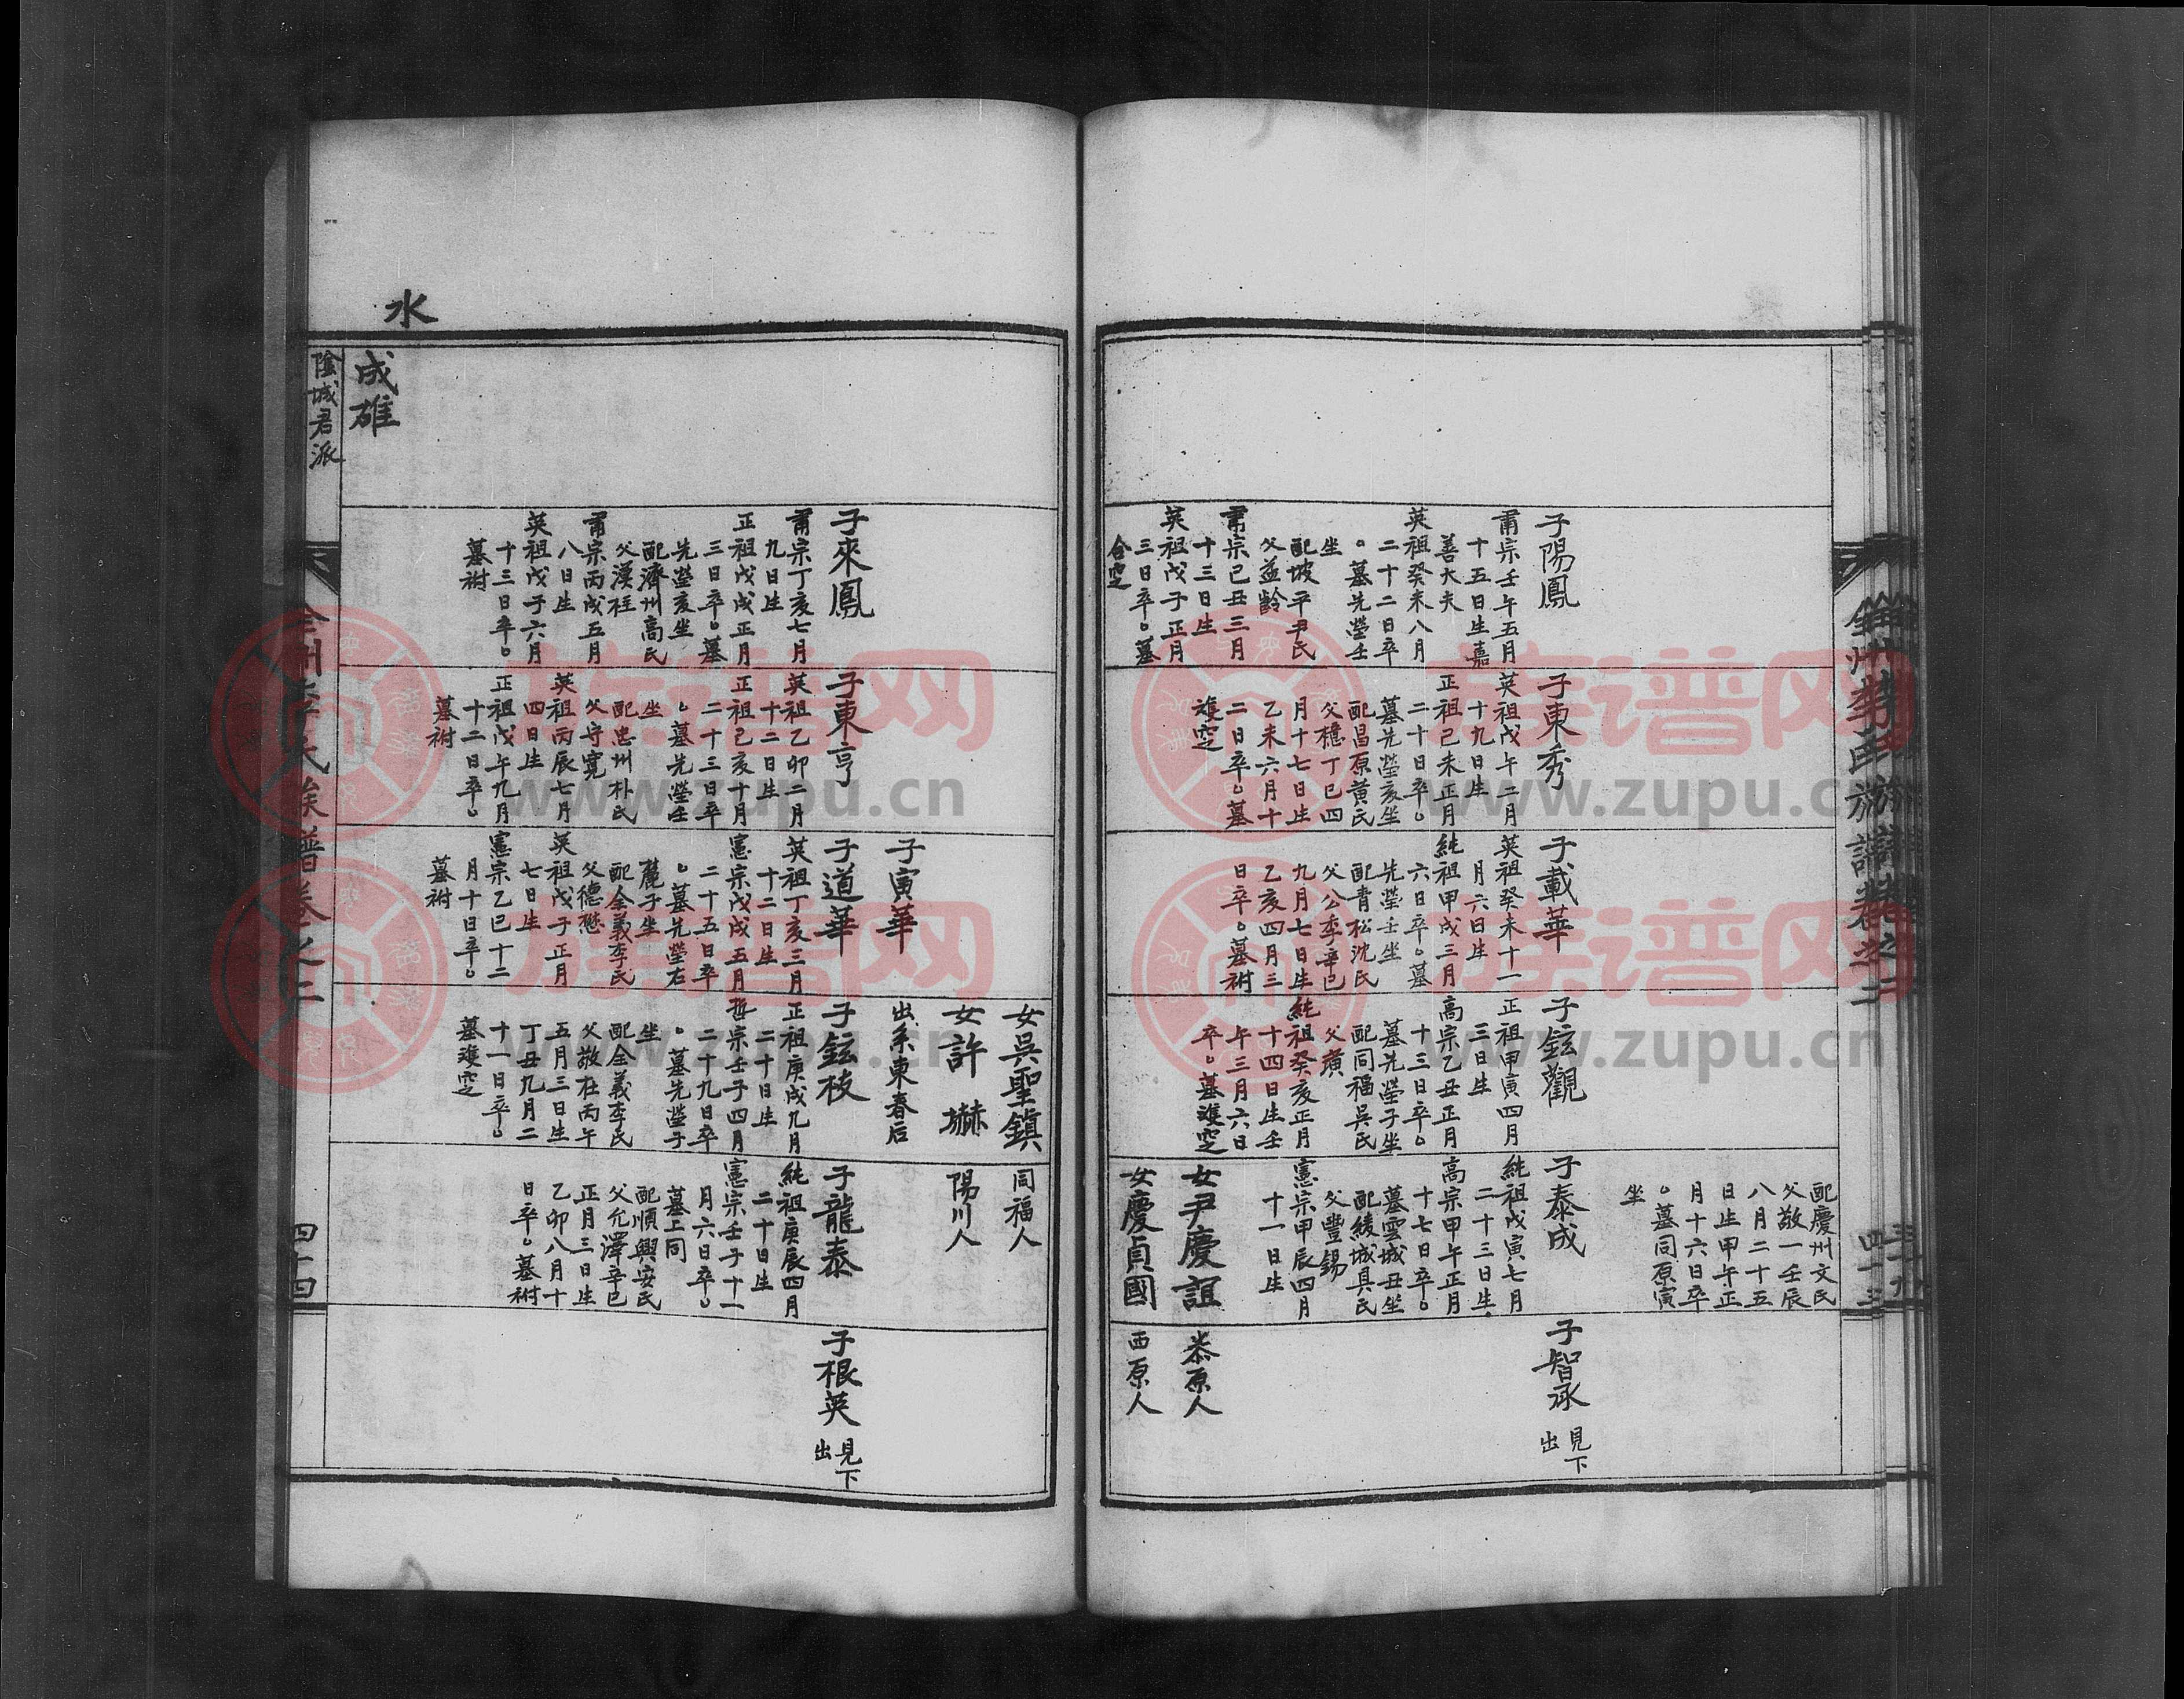 全州李氏族譜卷之二
四十三
子陽鳳
肅宗壬午五月
十五日生嘉
善大夫
英祖癸未八月
二十二日卒
。墓先塋壬
坐
配坡平尹氏
父益齡
肅宗己丑三月
十三日生
英祖戊子正月
三日卒。墓
合窆
子東秀
英祖戊午二月
十九日生
正祖己未正月
二十日卒。
墓先塋亥坐
配昌原黃氏
父穩丁巳四
月十七日生
乙未六月十
二日卒。墓
雙窆
子載華
英祖癸未十一
月六日生
純祖甲戌三月
六日卒。墓
先塋壬坐
配青松沈氏
父公季辛巳
九月七日生
乙亥四月三
日卒。墓祔
子鉉觀
正祖甲寅四月
三日生
高宗乙丑正月
十三日卒。
墓先塋子坐
配同福吳氏
父璜
純祖癸亥正月
十四日生壬
午三月六日
卒。墓雙窆
配慶州文氏
父敬一壬辰
八月二十五
日生甲午正
月十六日卒
。墓同原寅
坐
子泰成
純祖戊寅七月
二十三日生
高宗甲午正月
十七日卒。
墓雲城丑坐
配綾城具氏
父豐錫
憲宗甲辰四月
十一日生
女尹慶誼
女慶貞國
子智承
見下
出
恭原人
西原人
水
成雄
子來鳳
肅宗丁亥七月
九日生
正祖戊戌正月
三日卒。墓
先塋亥坐
配濟州高氏
父漢柱
肅宗丙戌五月
八日生
英祖戊子六月
十三日卒。
墓祔
子東亨
英祖乙卯二月
十二日生
正祖己亥十月
二十三日卒
。墓先塋壬
坐
配忠州朴氏
父守寬
英祖丙辰七月
四日生
正祖戊午九月
十二日卒。
墓祔
子寅華
子道華
英祖丁亥三月
十二日生
憲宗戊戌五月
二十五日卒
。墓先塋右
麓子坐
配全義李氏
父德懋
英祖戊子正月
七日生
憲宗乙巳十二
月十日卒。
墓祔
女吳聖鎮
女許𡑅
出系東春后
子鉉枝
正祖庚戌九月
二十日生
哲宗壬子四月
二十九日卒
。墓先塋子
坐
配全義李氏
父敬杜丙午
五月三日生
丁丑九月二
十一日卒。
墓雙窆
同福人
陽川人
子龍泰
純祖庚辰四月
二十日生
憲宗壬子十一
月六日卒。
墓上同
配順興安氏
父允澤辛巳
正月三日生
乙卯八月十
日卒。墓祔
子根英
見下
出
陰城君派
全州李氏族譜卷之二
四十四
族谱网
www.zupu.cn
族谱网
www.zupu.cn
族谱网
www.zupu.cn
族谱网
www.zupu.cn